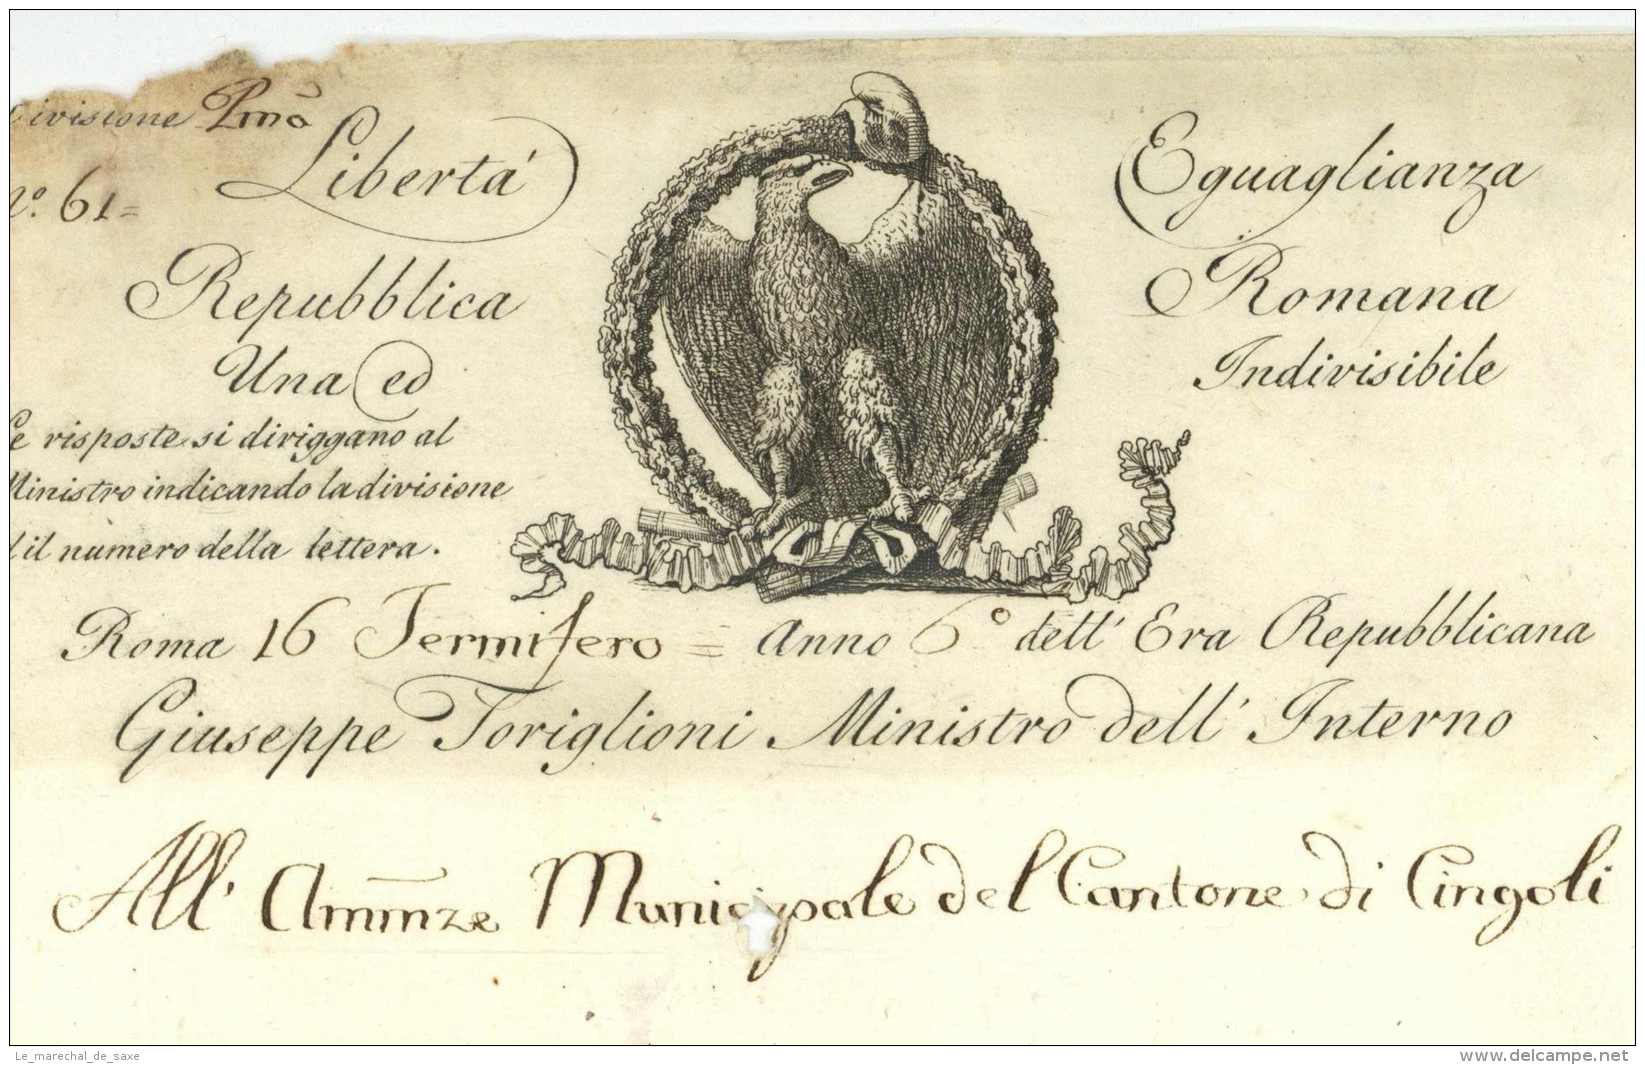 Divisione Pma
Libertà Eguaglianza
No. 61=
Repubblica Romana
Una ed Indivisibile
Le risposte si diriggano al
Ministro indicando la divisione
ed il numero della lettera.
Roma 16 Termifero = Anno 6o dell' Era Repubblicana
Giuseppe Toriglioni Ministro dell' Interno
All' Ammnze Municipale del Cantone di Cingoli
Le_marechal_de_saxe
www.delcampe.net